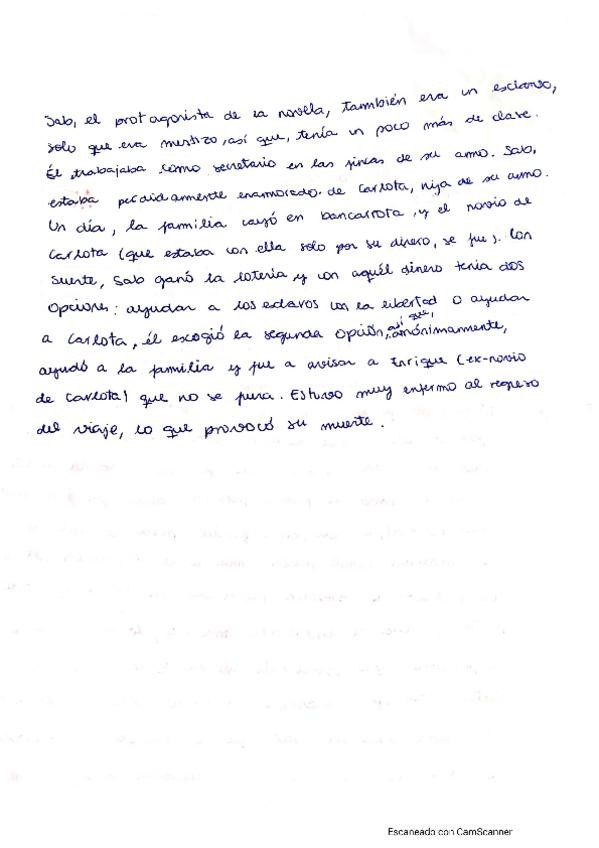 Sab, el protagonista de la novela, también era un esclavo,
solo que era mestizo, así que, tenía un poco más de clase.
Él trabajaba como secretario en las fincas de su amo. Sab,
estaba perdidamente enamorado de Carlota, hija de su amo.
Un día, la familia cayó en bancarrota, y el novio de
Carlota (que estaba con ella solo por su dinero, se fue). Con
suerte, Sab ganó la lotería y con aquél dinero tenía dos
opciones: ayudar a los esclavos con la libertad o ayudar
a Carlota, él escogió la segunda opción, así que, anónimanmente,
ayudó a la familia y fue a avisar a Enrique (ex-novio
de Carlota) que no se fura. Estuvo muy enfermo al regreso
del viaje, lo que provocó su muerte.
Escaneado con CamScanner